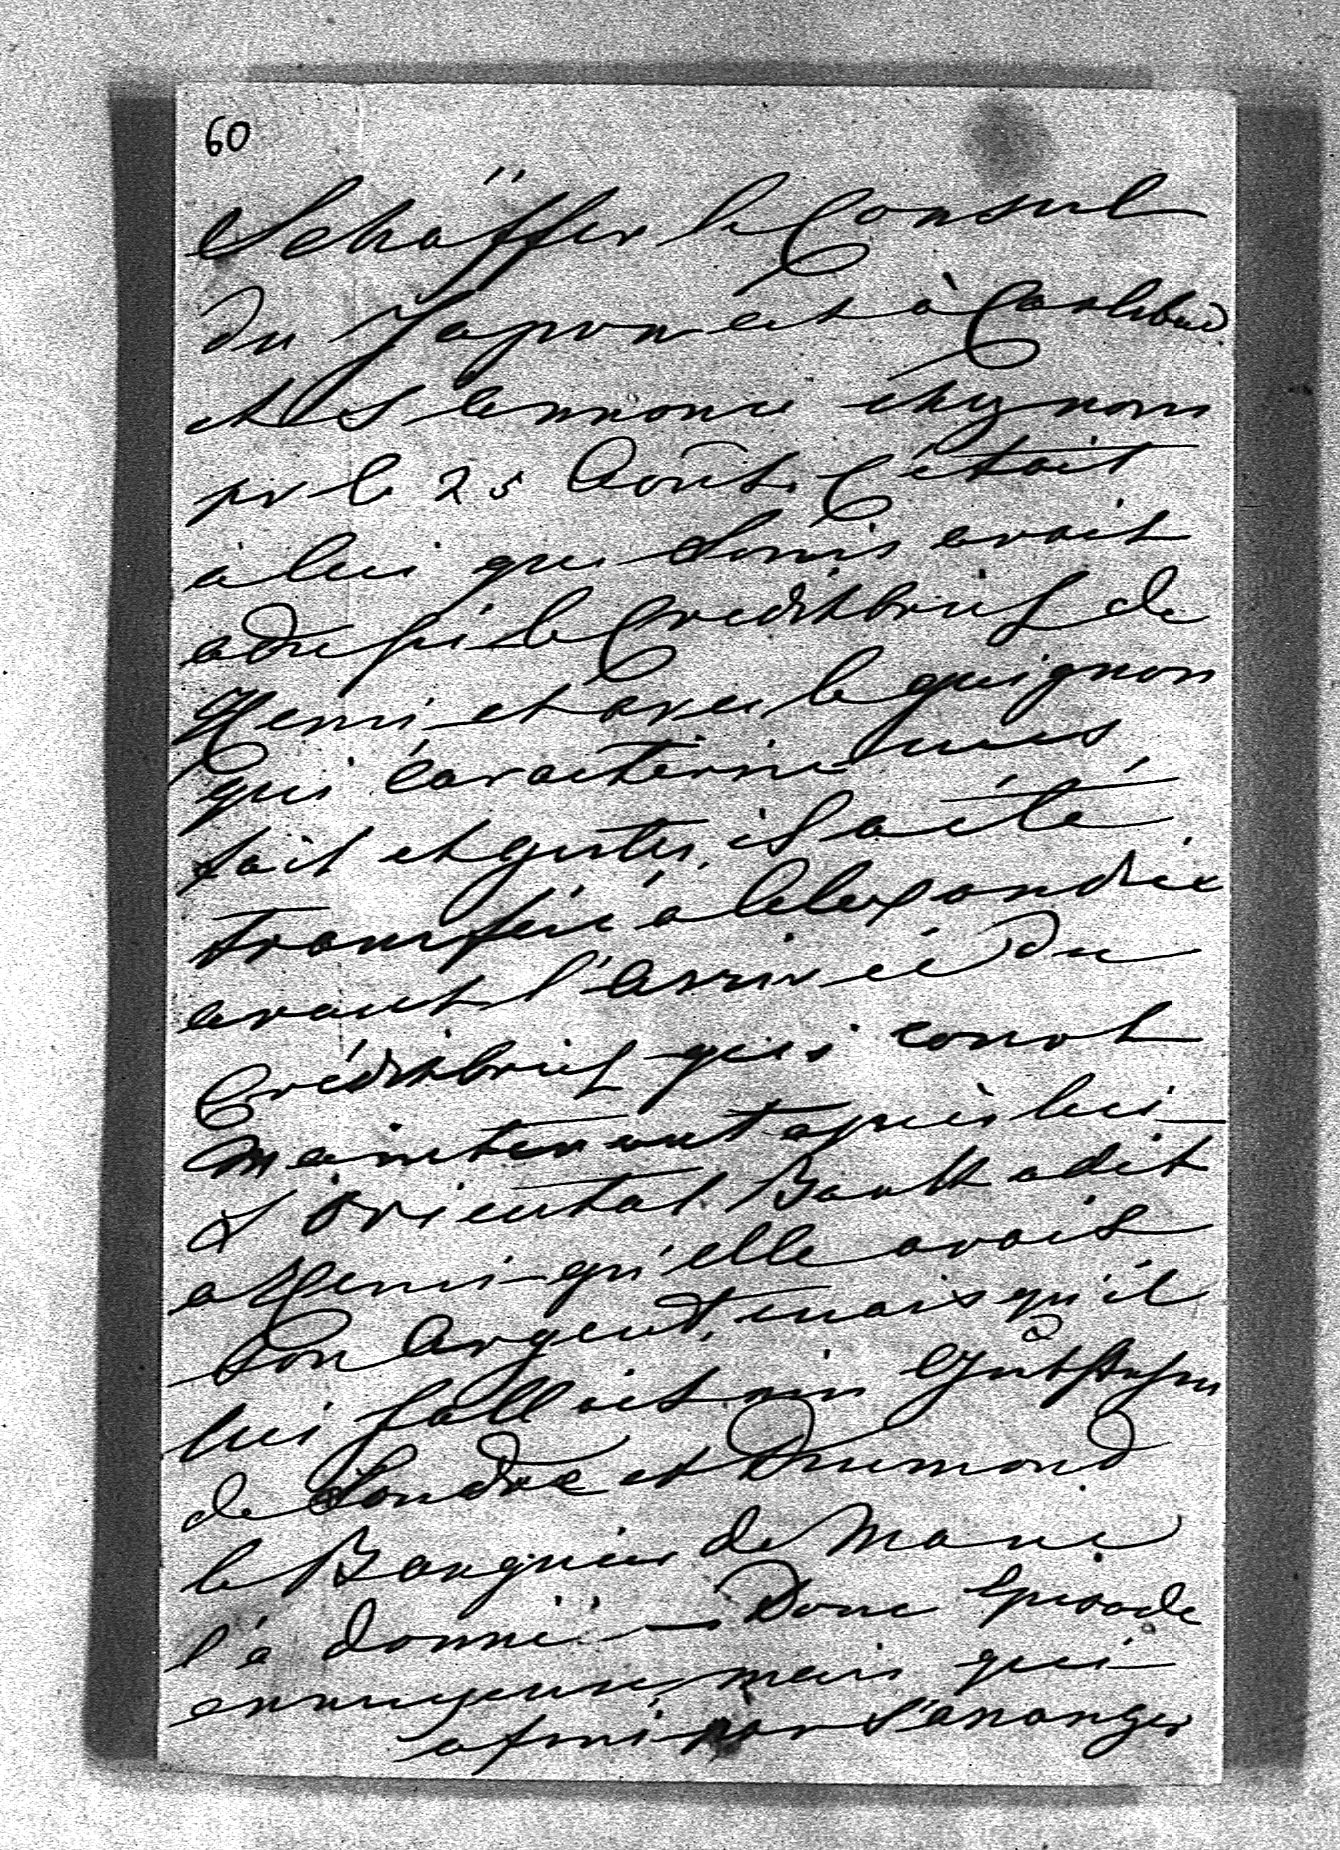 60
Schäffer le Consul
du Japon est à Carlsbad
et S'Annonce chez nous
pr le 25 Août. C'était
à lui que Louis avait
adressé le Creditbrief de
Henri et avec le guignon
qui caracterise mes
fait et gestes, il a été
transferé à Alexandrie
avant l'arrivée du
Créditbrief qui court
maintenant après lui
L'Oriental Bank a dit
a Henri qu'elle avait
son Argent, mais qu'il
lui fallait ein
de Londre et Drumond
le Banquier de Marie
l'a donné — Donc Episode
ennuyeuse mais qui
a fini par s'arranger